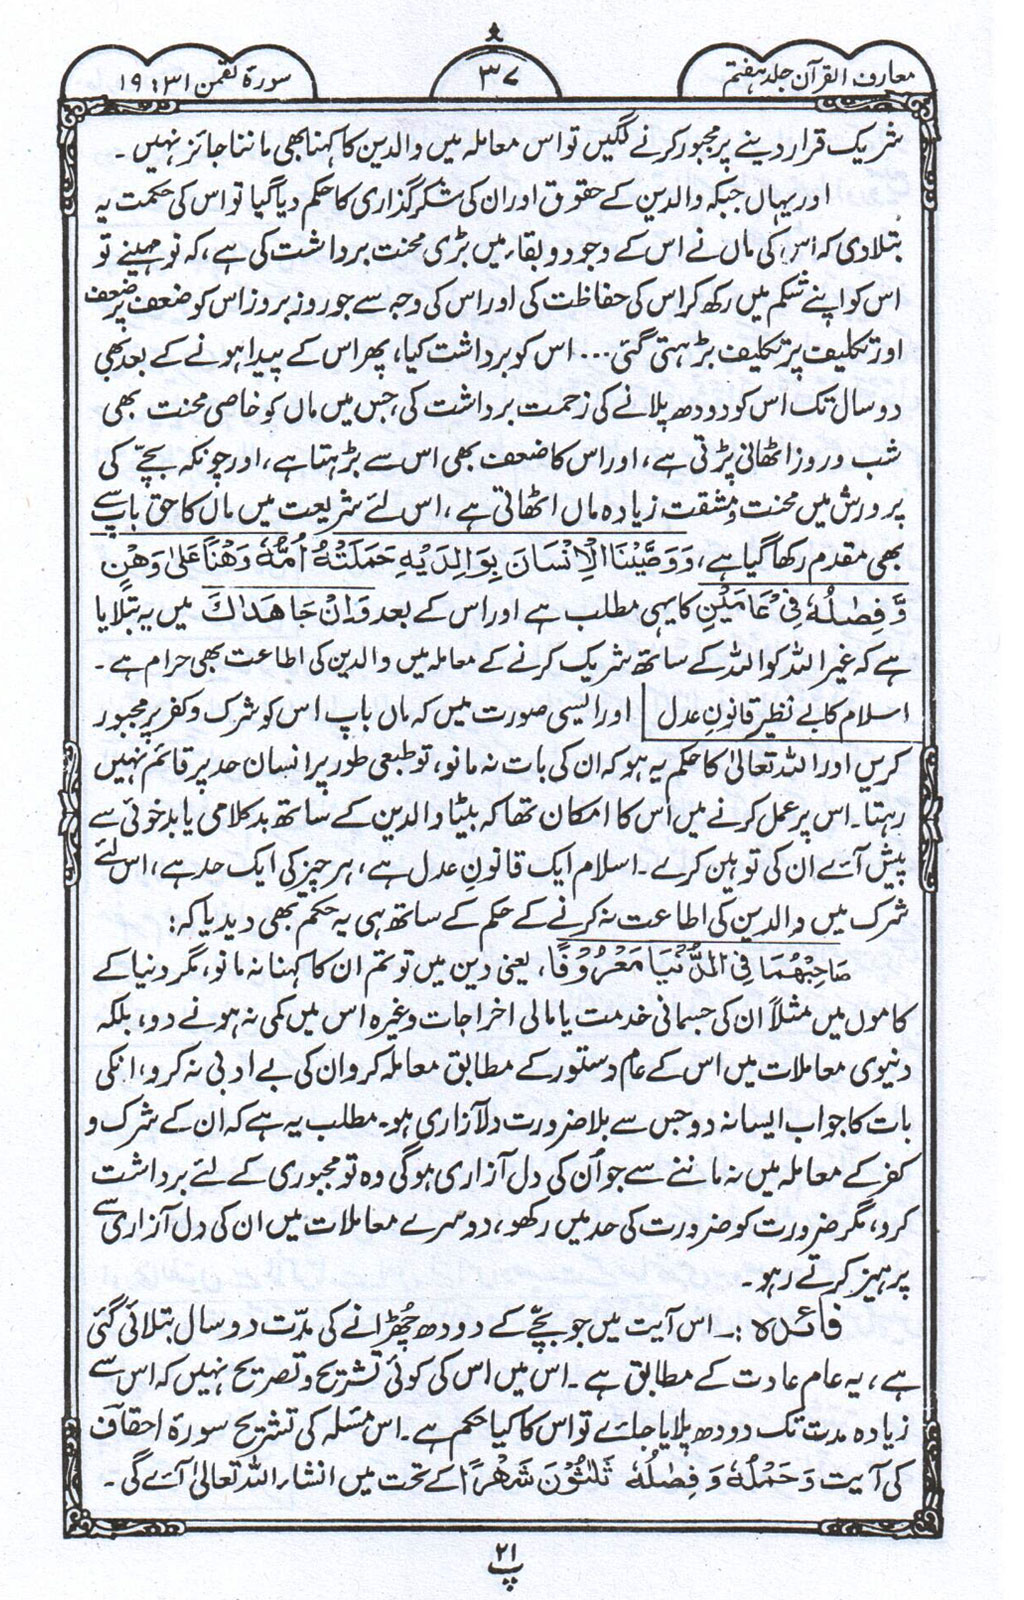 معارف القرآن جلد ہفتم
۳۷
سورۃ لقمٰن ۳۱ : ۱۹
شریک قرار دینے پر مجبور کرنے لگیں تو اس معاملہ میں والدین کا کہنا بھی ماننا جائز نہیں ۔
اور یہاں جبکہ والدین کے حقوق اور ان کی شکر گذاری کا حکم دیا گیا تو اس کی حکمت یہ
بتلا دی کہ اس کی ماں نے اس کے وجود و بقاء میں بڑی محنت برداشت کی ہے، کہ نو مہینے تو
اس کو اپنے شکم میں رکھ کر اس کی حفاظت کی اور اس کی وجہ سے جو روز بروز اس کو ضعف پر ضعف
اور تکلیف پر تکلیف بڑہتی گئی ... اس کو برداشت کیا، پھر اس کے پیدا ہونے کے بعد بھی
دو سال تک اس کو دودھ پلانے کی زحمت برداشت کی، جس میں ماں کو خاصی محنت بھی
شب و روز اٹھانی پڑتی ہے، اور اس کا ضعف بھی اس سے بڑہتا ہے، اور چونکہ بچّے کی
پرورش میں محنت و مشقت زیادہ ماں اٹھاتی ہے، اس لئے شریعت میں ماں کا حق باپ سے
بھی مقدم رکھا گیا ہے، وَوَصَّيْنَا الْاِنْسَانَ بِوَالِدَيْهِ حَمَلَتْهُ اُمُّهٗ وَهْنًا عَلٰى وَهْنٍ
وَّ فِصٰلُهٗ فِيْ عَامَيْنِ کا یہی مطلب ہے اور اس کے بعد وَاِنْ جَاهَدٰكَ میں یہ بتلایا
ہے کہ غیر اللہ کو اللہ کے ساتھ شریک کرنے کے معاملہ میں والدین کی اطاعت بھی حرام ہے ۔
اسلام کا بے نظیر قانونِ عدل | اور ایسی صورت میں کہ ماں باپ اس کو شرک و کفر پر مجبور
کریں اور اللہ تعالیٰ کا حکم یہ ہو کہ ان کی بات نہ مانو، تو طبعی طور پر انسان حد پر قائم نہیں
رہتا۔ اس پر عمل کرنے میں اس کا امکان تھا کہ بیٹا والدین کے ساتھ بد کلامی یا بد خوئی سے
پیش آئے ان کی توہین کرے۔ اسلام ایک قانونِ عدل ہے، ہر چیز کی ایک حد ہے، اس لئے
شرک میں والدین کی اطاعت نہ کرنے کے حکم کے ساتھ ہی یہ حکم بھی دیدیا کہ:
صَاحِبْهُمَا فِي الدُّنْيَا مَعْرُوْفًا، یعنی دین میں تو تم ان کا کہنا نہ مانو، مگر دنیا کے
کاموں میں مثلاً ان کی جسمانی خدمت یا مالی اخراجات وغیرہ اس میں کمی نہ ہونے دو، بلکہ
دنیوی معاملات میں اس کے عام دستور کے مطابق معاملہ کرو ان کی بے ادبی نہ کرو، انکی
بات کا جواب ایسا نہ دو جس سے بلا ضرورت دلآزاری ہو۔ مطلب یہ ہے کہ ان کے شرک و
کفر کے معاملہ میں نہ ماننے سے جو اُن کی دل آزاری ہو گی وہ تو مجبوری کے لئے برداشت
کرو، مگر ضرورت کو ضرورت کی حد میں رکھو، دوسرے معاملات میں ان کی دل آزاری سے
پرہیز کرتے رہو ۔
فائدہ :۔ اس آیت میں جو بچّے کے دودھ چُھڑانے کی مدّت دو سال بتلائی گئی
ہے، یہ عام عادت کے مطابق ہے ۔ اس میں اس کی کوئی تشریح و تصریح نہیں کہ اس سے
زیادہ مدت تک دودھ پلایا جائے تو اس کا کیا حکم ہے۔ اس مسئلہ کی تشریح سورۃ احقاف
کی آیت وَحَمْلُهٗ وَفِصٰلُهٗ ثَلٰثُوْنَ شَهْرًا کے تحت میں انشاء اللہ تعالیٰ آئے گی ۔
۲۱
پ